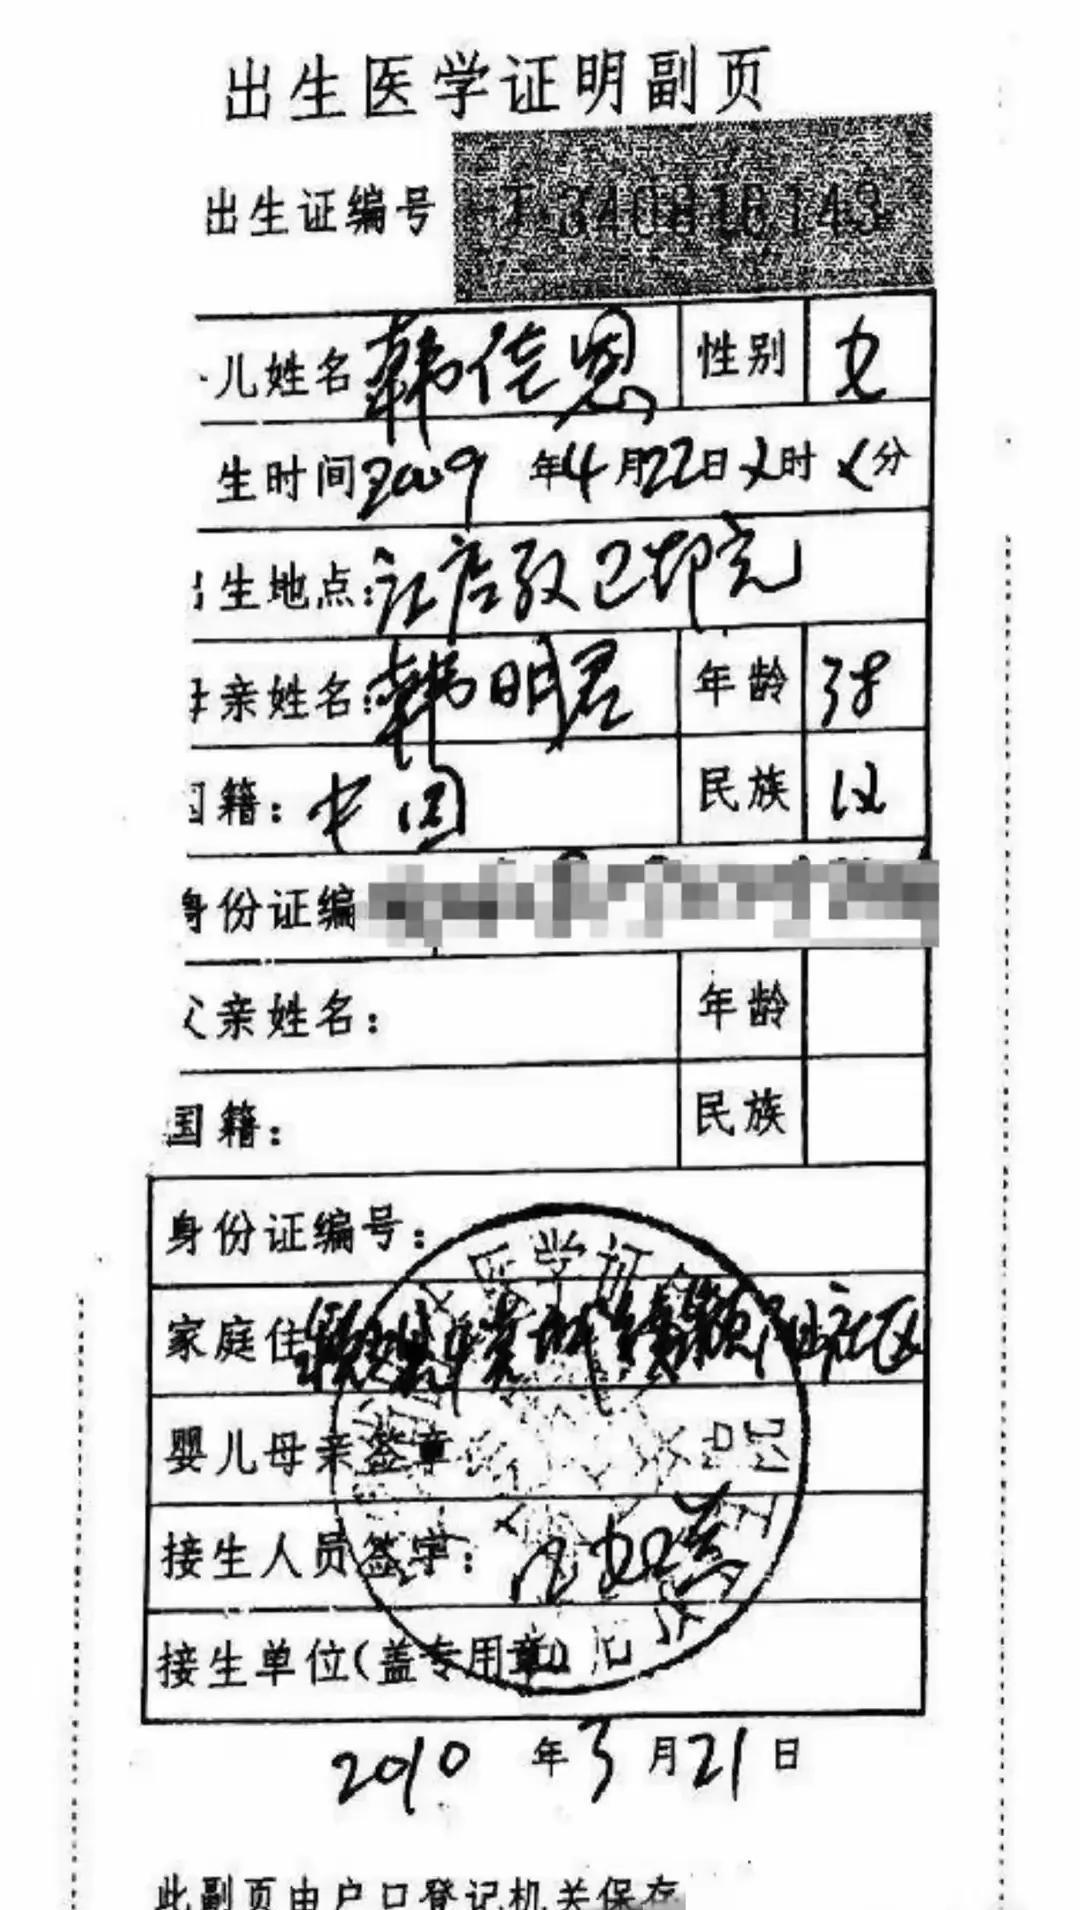 出生医学证明副页
出生证编号 J 340816143
儿姓名 韩佳恩 性别 女
生时间 2009 年 4 月 22 日 X 时 X 分
出生地点:
母亲姓名: 韩明君 年龄 38
国籍: 中国 民族 汉
身份证编
父亲姓名: 年龄
国籍: 民族
身份证编号:
家庭住 社区
婴儿母亲签章
接生人员签字:
接生单位(盖专用章)
2010 年 3 月 21 日
此副页由户口登记机关保存